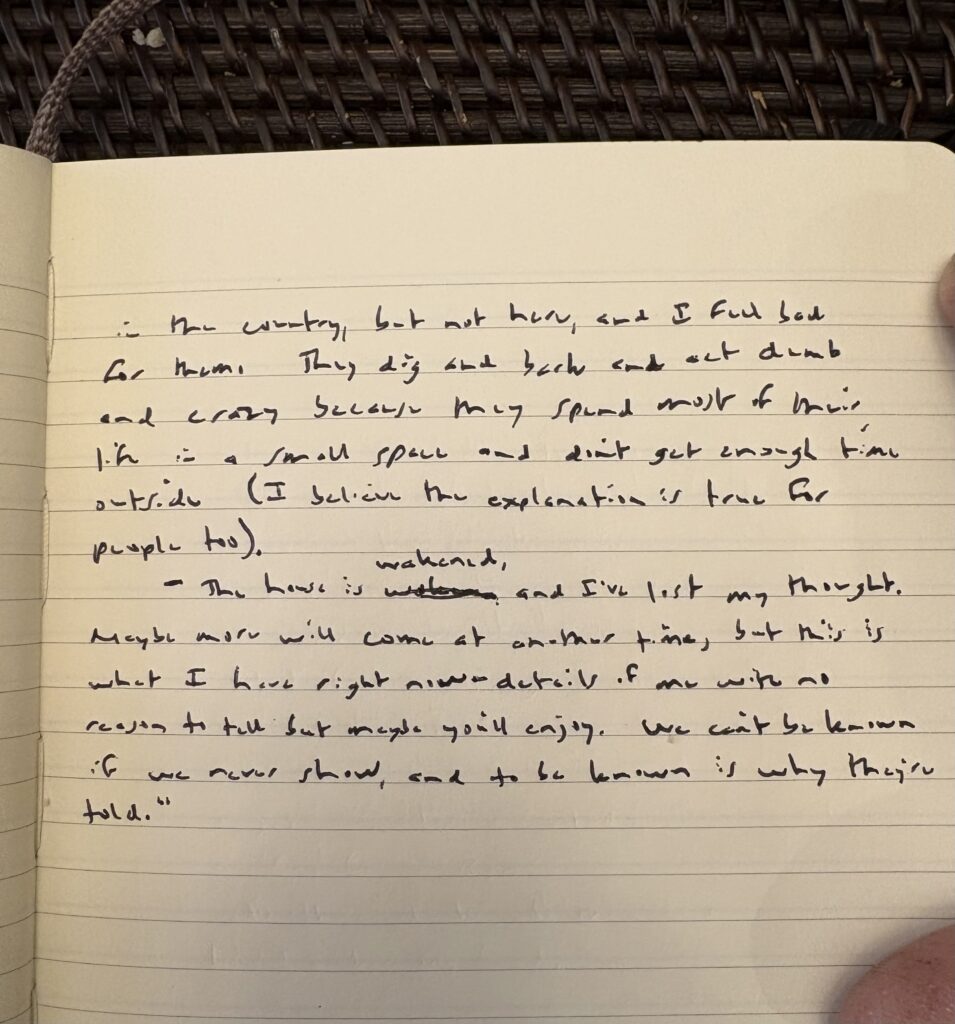 in the country, but not here, and I feel bad
for them. They dig and bark and act dumb
and crazy because they spend most of their
life in a small space and don't get enough time
outside (I believe the explanation is true for
people too).
wakened,
- The house is and I've lost my thought.
Maybe more will come at another time, but this is
what I have right now - details of me with no
reason to tell but maybe you'll enjoy. We can't be known
if we never show, and to be known is why they're
told."